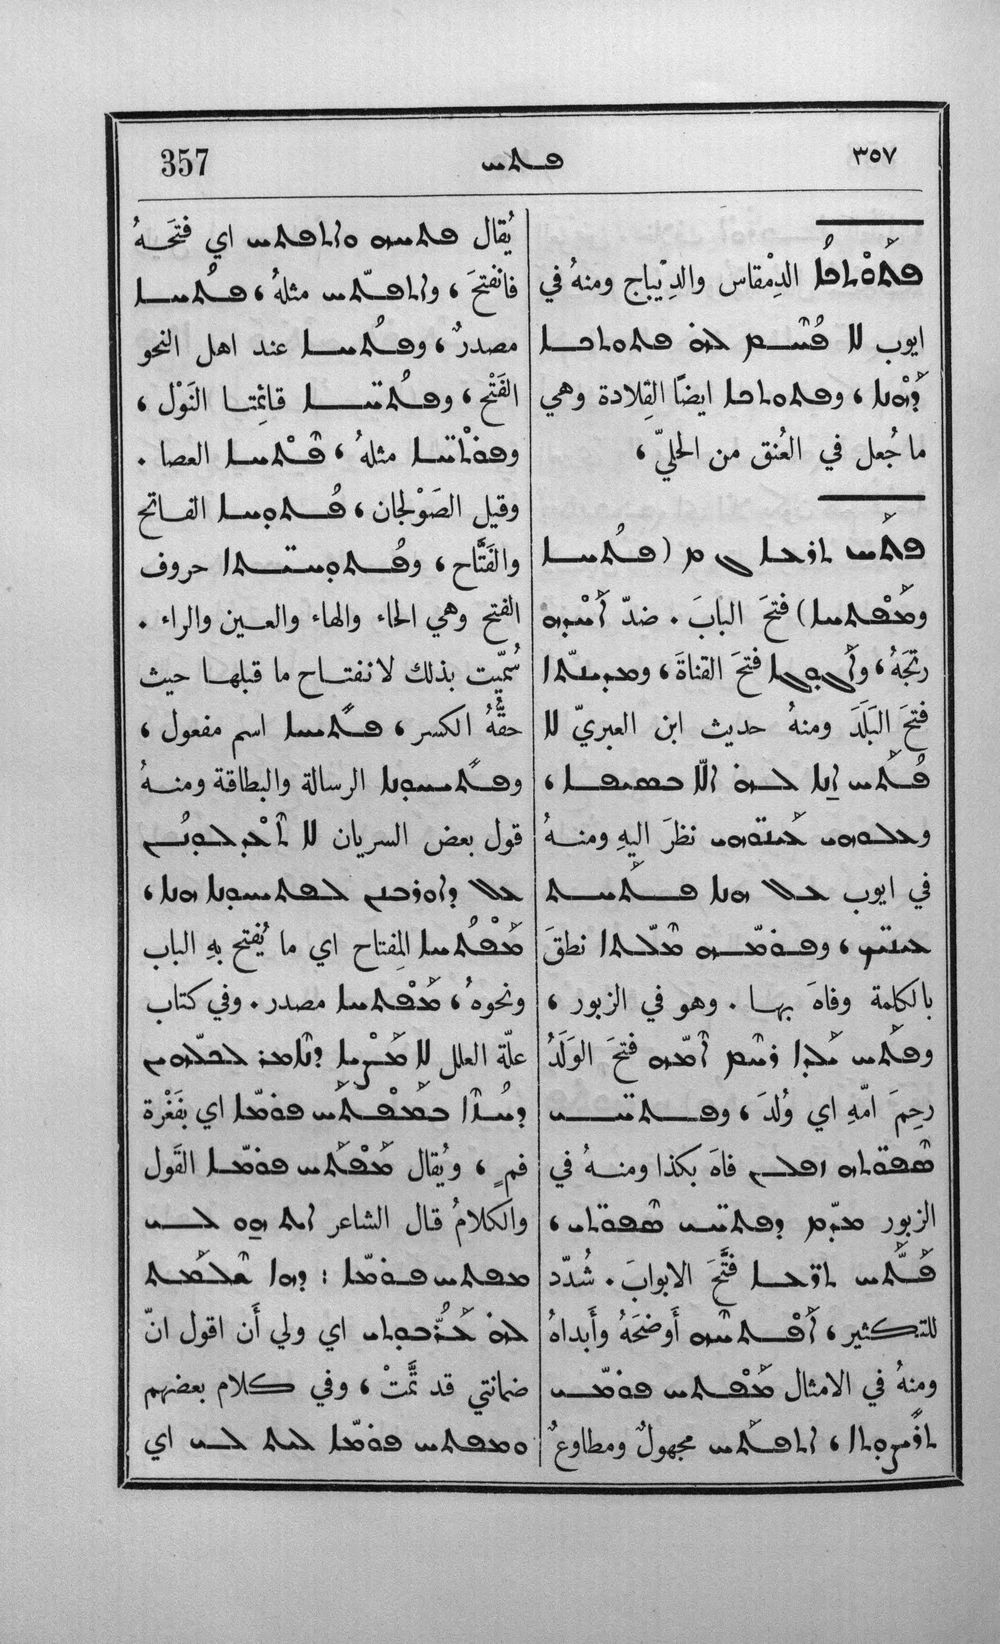 ٣٥٧ ܦܬܚ 357
ܦܬܘܬܟܐ الدِمْقاس والدِيباج ومنهُ في
ايوب ܠܐ ܦܚܡ ܠܗ ܦܬܘܬܟܐ
ܕܙܗܘܢܐ ، وܦܬܘܬܟܐ ايضًا القِلادة وهي
ما جُعل في العُنق من الحليّ ،
ܦܬܚ ܬܪܥܐ (ܦܬܚܐ
وܡܦܬܚܐ) فتحَ البابَ . ضدّ ܐܚܕܗ
رتجَهُ ، و فتحَ القناةَ ، وܡܕܝܢܬܐ
فتحَ البَلَدَ ومنهُ حديث ابن العبريّ ܠܐ
ܦܬܚ ܐܢܐ ܠܗ ܐܠܐ ܒܣܝܦܐ ،
وܥܠܘܗܝ ܥܝܢܘܗܝ نظرَ اليهِ ومنهُ
في ايوب ܥܠ ܗܢܐ ܦܬܚܬ
ܥܝܢܝܟ ، وܦܘܡܗ ܡܠܬܐ نطقَ
بالكلمة وفاهَ بها . وهو في الزبور ،
وܦܬܚ ܝܠܕܐ ܪܚܡ ܐܡܗ فتحَ الوَلَدُ
رحِمَ امّهِ اي وُلدَ ، وܦܬܚ
ܣܦܘܬܗ فاهَ بكذا ومنهُ في
الزبور ܡܕܡ ܕܦܬܚ ܣܦܘܬܝ ،
ܦܬܚ ܬܪܥܐ فتَّحَ الابوابَ . شُدّد
للتكثير ، ܐܦܬܚܗ أَوضحَهُ وأَبداهُ
ومنهُ في الامثال ܡܦܬܚ ܦܘܡܝ
ܬܪܝܨܘܬܐ ، ܐܬܦܬܚ مجهولٌ ومطاوعٌ
يُقال ܦܬܚܗ ܘܐܬܦܬܚ اي فتَحَهُ
فانفتحَ ، وܐܬܦܬܚ مثلهُ ، ܦܬܚܐ
مصدرٌ ، وܦܬܚܐ عند اهل النحو
الفَتْح ، وܦܬܚܐ قائمتا النَوْل ،
وܦܘܬܚܐ مثلهُ ، ܦܬܚܐ العصا .
وقيل الصَوْلجان ، ܦܬܘܚܐ الفاتح
والفَتَّاح ، وܦܬܘܚܬܐ حروف
الفتح وهي الحاء والهاء والعين والراء .
سُمّيت بذلك لانفتاح ما قبلها حيث
حقُّهُ الكسر ، ܦܬܝܚܐ اسم مفعول ،
وܦܬܝܚܘܢܐ الرسالة والبطاقة ومنهُ
قول بعض السريان ܠܐ ܬܥܒܕܘܢ
ܥܠ ܕܐܘܪܟܬ ܠܦܬܝܚܘܢܐ ܗܢܐ ،
ܡܦܬܚܐ المِفتاح اي ما يُفتح بهِ الباب
ونحوهُ ، ܡܦܬܚܐ مصدر . وفي كتاب
علّة العلل ܠܐ ܡܨܝܐ ܕܬܐܡܪ ܠܟܠܗܝܢ
ܕܚܙܬ ܒܡܦܬܚ ܦܘܡܐ اي بفَغْرة
فمٍ ، ويُقال ܡܦܬܚ ܦܘܡܐ القَول
والكلامُ قال الشاعر ܐܝܬ ܗܘ ܠܝ
ܡܦܬܚ ܦܘܡܐ : ܕܗܐ ܫܠܡܬ
ܠܗ ܥܪܒܘܬܝ اي ولي أَن اقول انّ
ضمانتي قد تمَّتْ ، وفي كلام بعضهم
ܘܡܦܬܚ ܦܘܡܐ ܠܝܬ ܠܝ اي